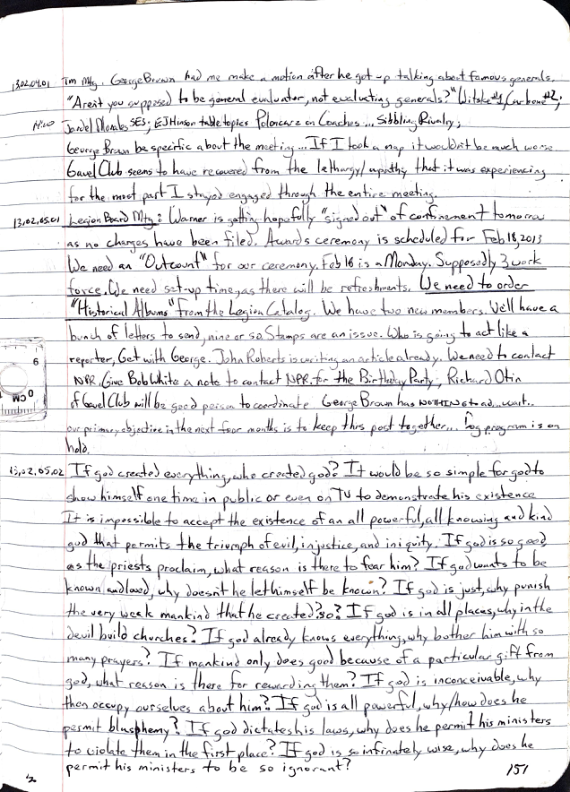 13.02.04.01 Tm Mtg. George Brown had me make a motion after he got up talking about famous generals.
"Arent you supposed to be general evaluator, not evaluating generals?"
Jordel Morales SES; EJ Hinson table topics Polencarz on Conches... Sibbling Rivalry;
George Brown be specific about the meeting... If I took a nap it wouldn't be much worse
Gavel Club seems to have recovered from the lethargy/apathy that it was experiencing
for the most part I stayed engaged through the entire meeting.
13.02.05.01 Legion Board Mtg: Warner is getting hopefully "signed out" of confinement tomorrow
as no charges have been filed. Awards ceremony is scheduled for Feb 18, 2013
We need an "Outcount" for our ceremony. Feb 18 is a Monday. Supposedly 3 work
force. We need set-up time, as there will be refreshments. We need to order
"Historical Albums" from the Legion Catalog. We have two new members. We'll have a
bunch of letters to send, nine or so. Stamps are an issue. Who is going to act like a
reporter, Get with George. John Roberts is writing an article already. We need to contact
NPR. Give Bob White a note to contact NPR, for the Birthday Party; Richard Otin
of Gavel Club will be good person to coordinate George Brown has NOTHING to ad...wait..
our primary objective in the next four months is to keep this post together... Log program is on
hold.
13.02.05.02 If god created everything, who created god? It would be so simple for god to
show himself one time in public or even on TV to demonstrate his existence
It is impossible to accept the existence of an all powerful, all knowing and kind
god that permits the triumph of evil, injustice, and iniquity. If god is so good
as the priests proclaim, what reason is there to fear him? If god wants to be
known and loved, why doesn't he let himself be known? If god is just, why punish
the very weak mankind that he created? so? If god is in all places, why in the
devil build churches? If god already knows everything, why bother him with so
many prayers? If mankind only does good because of a particular gift from
god, what reason is there for rewarding them? If god is inconceivable, why
then occupy ourselves about him? If god is all powerful, why/how does he
permit blasphemy? If god dictates his laws, why does he permit his ministers
to violate them in the first place? If god is so infinately wise, why does he
permit his ministers to be so ignorant?
151
6
CM